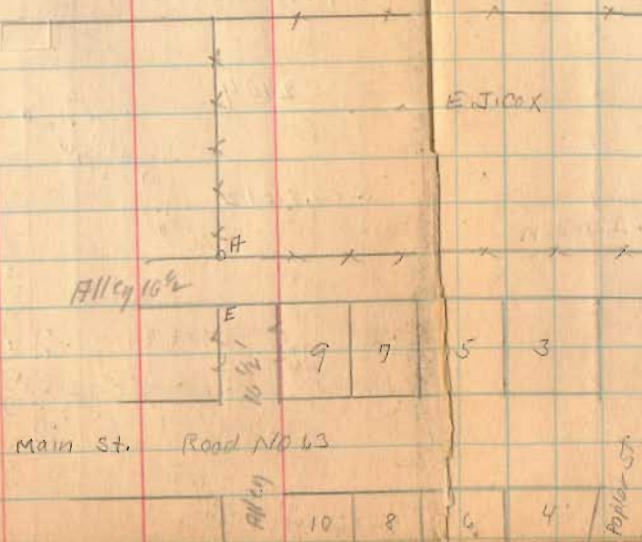 E.J.COX
A
Alley 16½
E
16½'
9 7 5 3
Main St. Road No 63
Alley
10 8 6 4
Poplar St